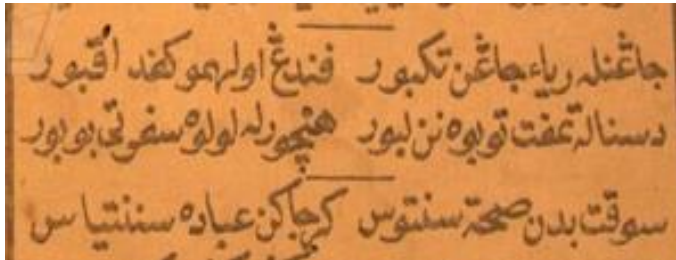 جاڠنله رياء جاڠن تكبور فندڠ اولهمو كفد اقبور
دسناله تمفت توبوه نن لبور هنچورله لولوه سفرتي بوبور
سوقت بدن صحة سنتوس كرجاكن عباده سنتتياس